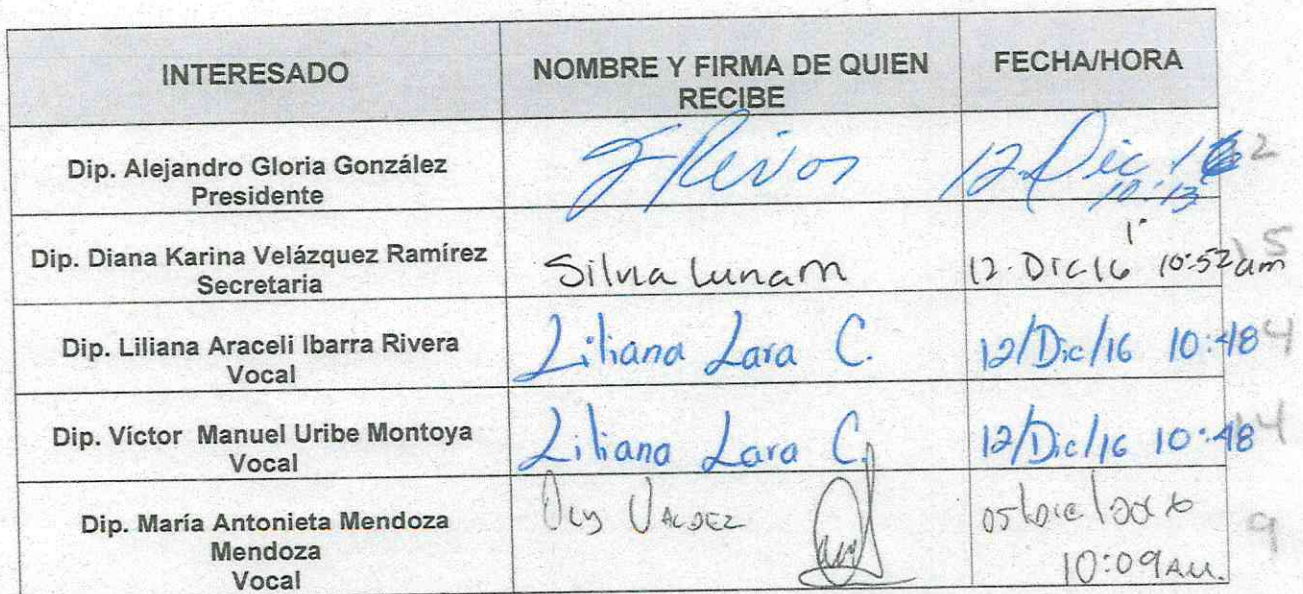 INTERESADO
NOMBRE Y FIRMA DE QUIEN RECIBE
FECHA/HORA
Dip. Alejandro Gloria González
Presidente
12 Dic 16 2
10:13
Dip. Diana Karina Velázquez Ramírez
Secretaria
Silvia Luna m
12. Dic 16 10:52 am 5
Dip. Liliana Araceli Ibarra Rivera
Vocal
Liliana Lara C.
12/Dic/16 10:48 4
Dip. Víctor Manuel Uribe Montoya
Vocal
Liliana Lara C.
12/Dic/16 10:48 4
Dip. María Antonieta Mendoza
Mendoza
Vocal
Valdez
10:09 AM.
9